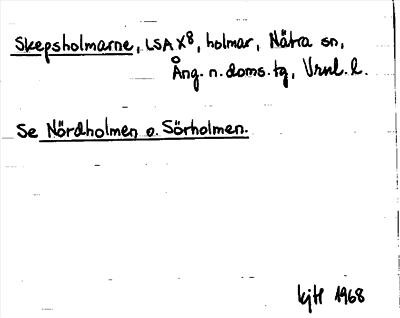 Skepsholmarne, LSA X8, holmar, Nätra sn,
Ång. n. doms. tg, Vrnl. l.
Se Nördholmen o. Sörholmen.
kjH 1968